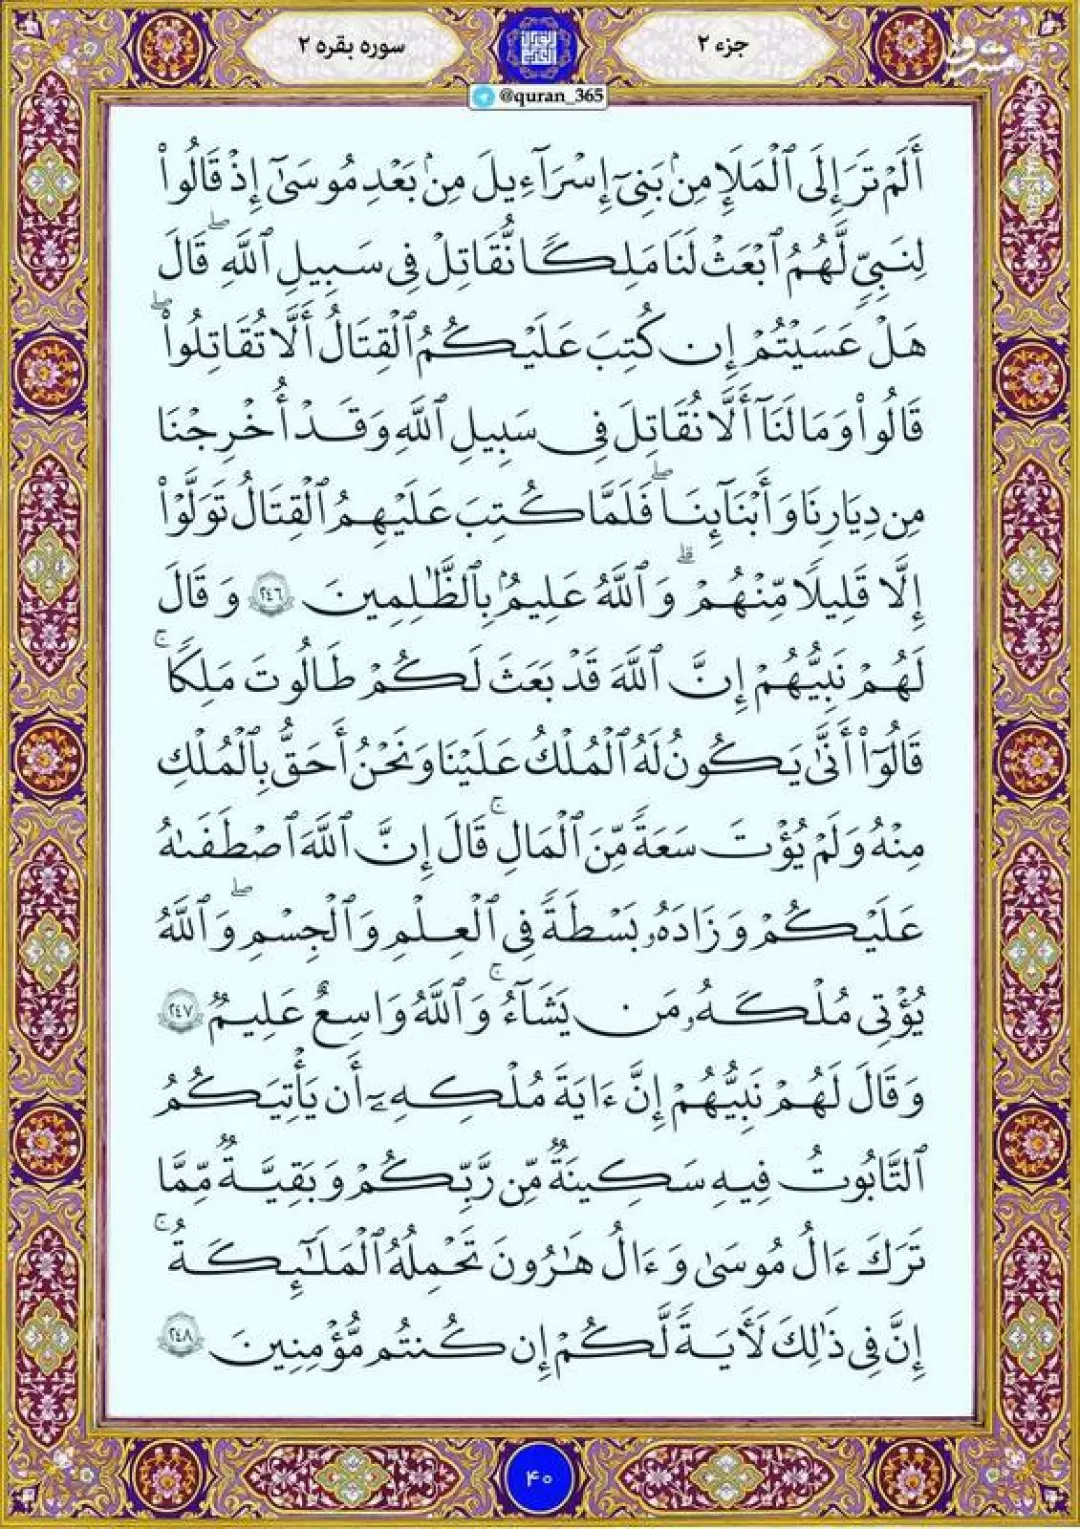 جزء ۲
سوره بقره ۲
@quran_365
أَلَمْ تَرَ إِلَى ٱلْمَلَإِ مِنۢ بَنِىٓ إِسْرَآءِيلَ مِنۢ بَعْدِ مُوسَىٰٓ إِذْ قَالُوا۟
لِنَبِىٍّ لَّهُمُ ٱبْعَثْ لَنَا مَلِكًا نُّقَاتِلْ فِى سَبِيلِ ٱللَّهِ ۖ قَالَ
هَلْ عَسَيْتُمْ إِن كُتِبَ عَلَيْكُمُ ٱلْقِتَالُ أَلَّا تُقَاتِلُوا۟ ۖ
قَالُوا۟ وَمَا لَنَآ أَلَّا نُقَاتِلَ فِى سَبِيلِ ٱللَّهِ وَقَدْ أُخْرِجْنَا
مِن دِيَارِنَا وَأَبْنَآئِنَا ۖ فَلَمَّا كُتِبَ عَلَيْهِمُ ٱلْقِتَالُ تَوَلَّوْا۟
إِلَّا قَلِيلًا مِّنْهُمْ ۗ وَٱللَّهُ عَلِيمٌۢ بِٱلظَّـٰلِمِينَ ٢٤٦ وَقَالَ
لَهُمْ نَبِيُّهُمْ إِنَّ ٱللَّهَ قَدْ بَعَثَ لَكُمْ طَالُوتَ مَلِكًا ۚ
قَالُوٓا۟ أَنَّىٰ يَكُونُ لَهُ ٱلْمُلْكُ عَلَيْنَا وَنَحْنُ أَحَقُّ بِٱلْمُلْكِ
مِنْهُ وَلَمْ يُؤْتَ سَعَةً مِّنَ ٱلْمَالِ ۚ قَالَ إِنَّ ٱللَّهَ ٱصْطَفَىٰهُ
عَلَيْكُمْ وَزَادَهُۥ بَسْطَةً فِى ٱلْعِلْمِ وَٱلْجِسْمِ ۖ وَٱللَّهُ
يُؤْتِى مُلْكَهُۥ مَن يَشَآءُ ۚ وَٱللَّهُ وَٰسِعٌ عَلِيمٌ ٢٤٧
وَقَالَ لَهُمْ نَبِيُّهُمْ إِنَّ ءَايَةَ مُلْكِهِۦٓ أَن يَأْتِيَكُمُ
ٱلتَّابُوتُ فِيهِ سَكِينَةٌ مِّن رَّبِّكُمْ وَبَقِيَّةٌ مِّمَّا
تَرَكَ ءَالُ مُوسَىٰ وَءَالُ هَـٰرُونَ تَحْمِلُهُ ٱلْمَلَـٰٓئِكَةُ ۚ
إِنَّ فِى ذَٰلِكَ لَـَٔايَةً لَّكُمْ إِن كُنتُم مُّؤْمِنِينَ ٢٤٨
۴۰